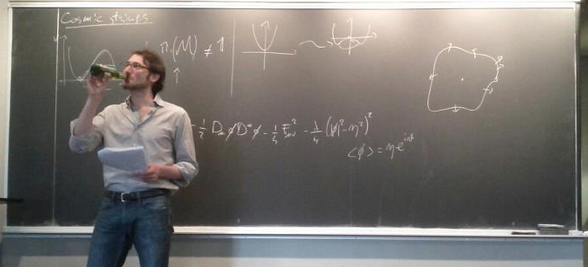 Cosmic strings
π₁(M) ≠ 1
-½ D_μφD^μφ - ¼ F_μν² - λ/4 (|φ|² - η²)²
<φ> = η e^iα